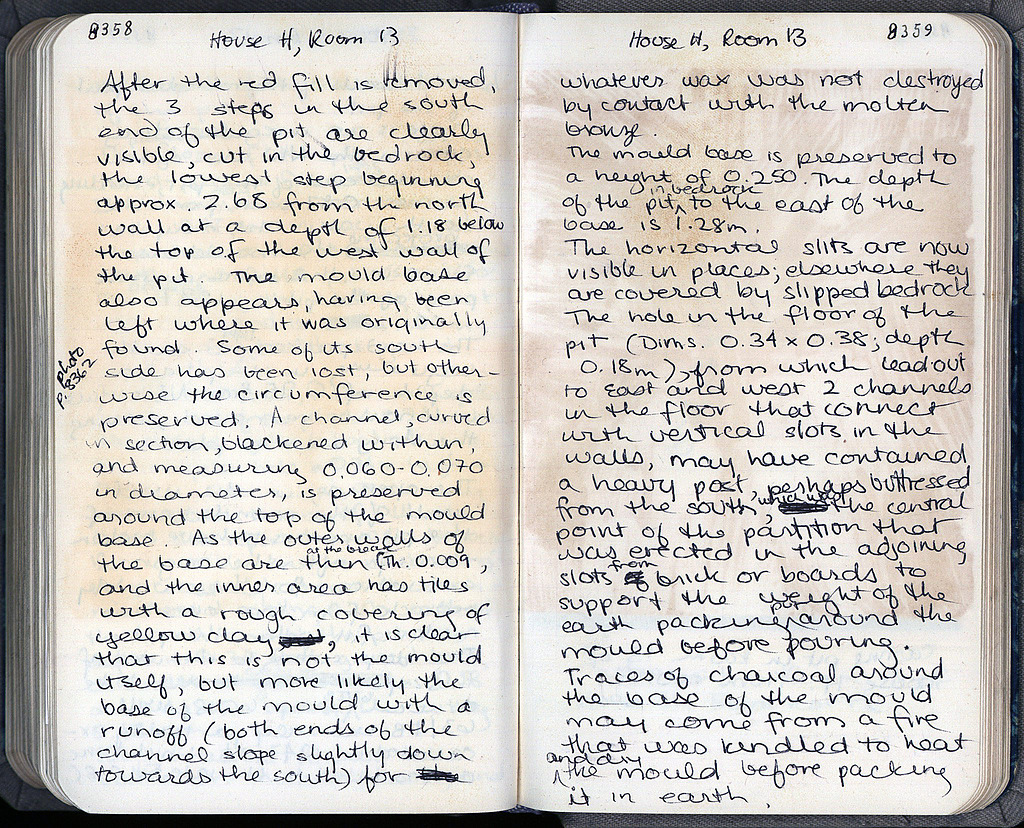 8358
House H, Room 13
After the red fill is removed,
the 3 steps in the south
end of the pit are clearly
visible, cut in the bedrock,
the lowest step beginning
approx. 2.68 from the north
wall at a depth of 1.18 below
the top of the west wall of
the pit. The mould base
also appears, having been
left where it was originally
found. Some of its south
side has been lost, but other-
wise the circumference is
preserved. A channel, curved
in section, blackened within,
and measuring 0.060-0.070
in diameter, is preserved
around the top of the mould
base. As the outer walls of
at the break
the base are thin (Th. 0.009,
and the inner area has tiles
with a rough covering of
yellow clay, it is clear
that this is not the mould
itself, but more likely the
base of the mould with a
runoff (both ends of the
channel slope slightly down
towards the south) for
photo
p. 8362
8359
House H, Room 13
whatever wax was not destroyed
by contact with the molten
bronze.
The mould base is preserved to
a height of 0.250. The depth
in bedrock
of the pit, to the east of the
base is 1.28m.
The horizontal slits are now
visible in places; elsewhere they
are covered by slipped bedrock.
The hole in the floor of the
pit (Dims. 0.34 x 0.38; depth
0.18m), from which lead out
to east and west 2 channels
in the floor that connect
with vertical slots in the
walls, may have contained
a heavy post, perhaps buttressed
from the south, which was at the central
point of the partition that
was erected in the adjoining
slots from brick or boards to
support the weight of the
put
earth packing around the
mould before pouring.
Traces of charcoal around
the base of the mould
may come from a fire
that was kindled to heat
and dry
the mould before packing
it in earth.